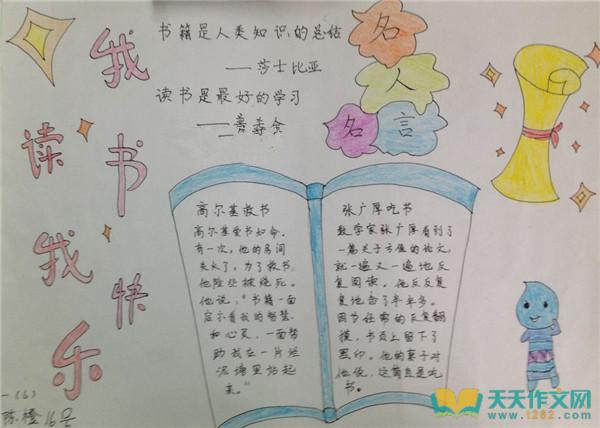 我
读书
我快
乐
书籍是人类知识的总结
——莎士比亚
读书是最好的学习
名
人
名言
高尔基救书
高尔基爱书如命。
有一次,他的房间
失火了,为了救书,
他险些被烧死。
他说,"书籍一面
启示着我的智慧
和心灵,一面帮
助我在一片烂
泥塘里站起
来。"
张广厚吃书
数学家张广厚看到了
一篇关于方值的论文,
就一遍又一遍地反
复阅读。他反反复
复地念了半年多。
因为经常的反复翻
摸,书页上留下了
黑印。他的妻子对
他说,这简直是吃
书。
一(6)
陈橙 16号
天天作文网
www.1262.com